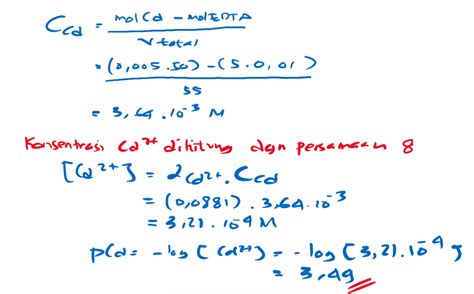 C_Cd = (mol Cd - mol EDTA) / V total
= (0,005.50) - (5.0,01) / 55
= 3,64.10⁻³ M
Konsentrasi Cd²⁺ dihitung dgn persamaan 8
[Cd²⁺] = α_Cd²⁺ . C_Cd
= (0,0881) . 3,64.10⁻³
= 3,21.10⁻⁴ M
pCd = -log [Cd²⁺] = -log [3,21.10⁻⁴]
= 3,49